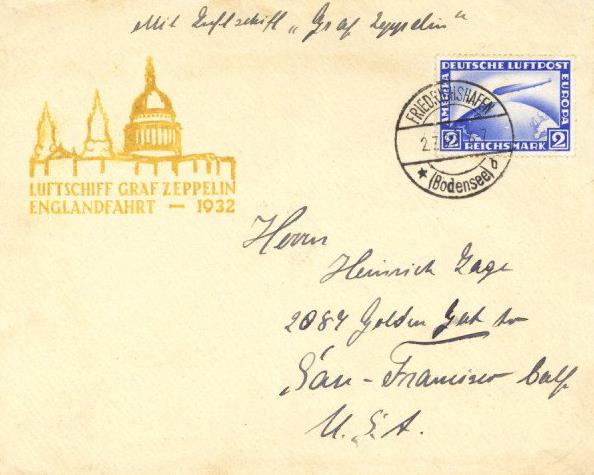 Mit Luftschiff „Graf Zeppelin“
DEUTSCHE LUFTPOST
AMERIKA
EUROPA
2 REICHSMARK 2
FRIEDRICHSHAFEN
2.7
★ (Bodensee) d
LUFTSCHIFF GRAF ZEPPELIN
ENGLANDFAHRT — 1932
Herrn
Heinrich
2087 Golden
San-Francisco Calf
U.S.A.